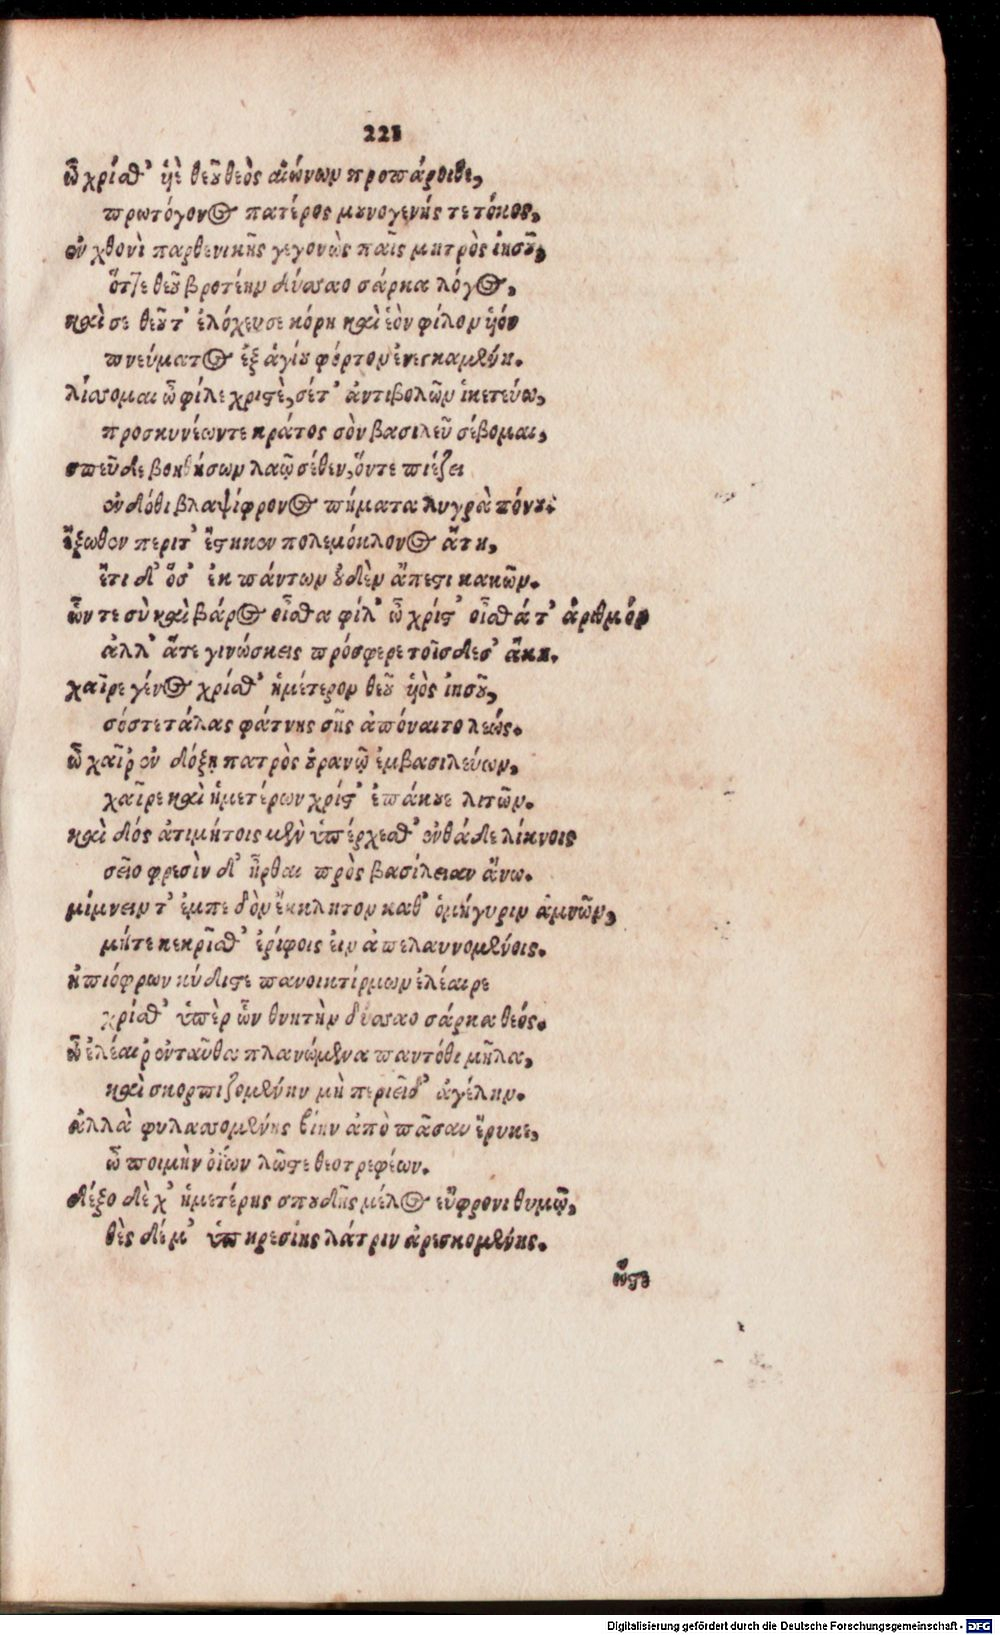 221
ὦ χρίσθ' ἠὲ θεοῦ θεὸς αἰώνων προπάροιθε,
πρωτόγονος πατέρος μουνογενής τε τόκος,
ἐν χθονὶ παρθενικῆς γεγονὼς παῖς μητρὸς ἰησοῦ,
ὅττε θεοῦ βροτέην δύσαο σάρκα λόγος,
καὶ σε θεοῦ τ' ἐλόχευσε κόρη καὶ ἑὸν φίλον ἡόν
πνεύματος ἐξ ἁγίου φόρτον ἐνεγκαμένη.
λίσσομαι ὦ φίλε χριστὲ, σέτ' ἀντιβολῶν ἱκετεύω,
προσκυνέωντε κράτος σὸν βασιλεῦ σέβομαι,
σπεῦδε βοηθήσων λαῷ σέθεν, ὅντε πιέζει
ἐνδόθι βλαψίφρονος πήματα λυγρὰ πόνου:
ἔξωθεν περιτ' ἕστηκεν πολεμόκλονος ἄτη,
ἔτι δ' ὅσ' ἐκ πάντων οὐδὲν ἄπεστι κακῶν.
ὧν τε σὺ καὶ βάρος οἶσθα φίλ' ὦ χρίστ' οἶσθά τ' ἀριθμόν
ἀλλ' ἅτε γινώσκεις πρόσφερε τοῖσδεσ' ἄκη.
χαῖρε γένος χρίσθ' ἡμέτερον θεοῦ ἡὸς ἰησοῦ,
σόστετάλας φάτνης σῆς ἀπόναιτο λεώς.
ὦ χαῖρ' ἐν δόξῃ πατρὸς οὐρανῷ ἐμβασιλεύων,
χαῖρε καὶ ἡμετέρων χρίστ' ἐπάκουε λιτῶν.
καὶ δός ἀτιμήτοις μὲν ὑπέρχεσθ' ἐνθάδε λίκνοις
σεῖο φρεσὶν δ' ἦρθαι πρὸς βασίλειαν ἄνω.
μίμνειν τ' ἐμπεδὸν ἔκκλητον καθ' ὁμήγυριν ἀμνῶν,
μήτε κεκρῖσθ' ἐρίφοις ἐιν ἀπελαυνομένοις.
ἠπιόφρων κύδιστε πανοικτίρμων ἐλέαιρε
χρίσθ' ὑπὲρ ὧν θνητὴν δύσαο σάρκα θεός.
ὦ ἐλέαιρ' ἐνταῦθα πλανώμενα παντόθι μῆλα,
καὶ σκορπιζομένην μὴ περιεῖδ' ἀγέλην.
ἀλλὰ φυλασσομένης βίην ἀπὸ πᾶσαν ἔρυκε,
ὦ ποιμὴν ὀΐων λῶστε θεοτρεφέων.
δέξο δὲ χ' ἡμετέρης σπουδῆς μέλος εὔφρονι θυμῷ,
θὲς δέ μ' ὑπηρεσίης λάτριν ἀρεσκομένης.
ὥστε
Digitalisierung gefördert durch die Deutsche Forschungsgemeinschaft - DFG